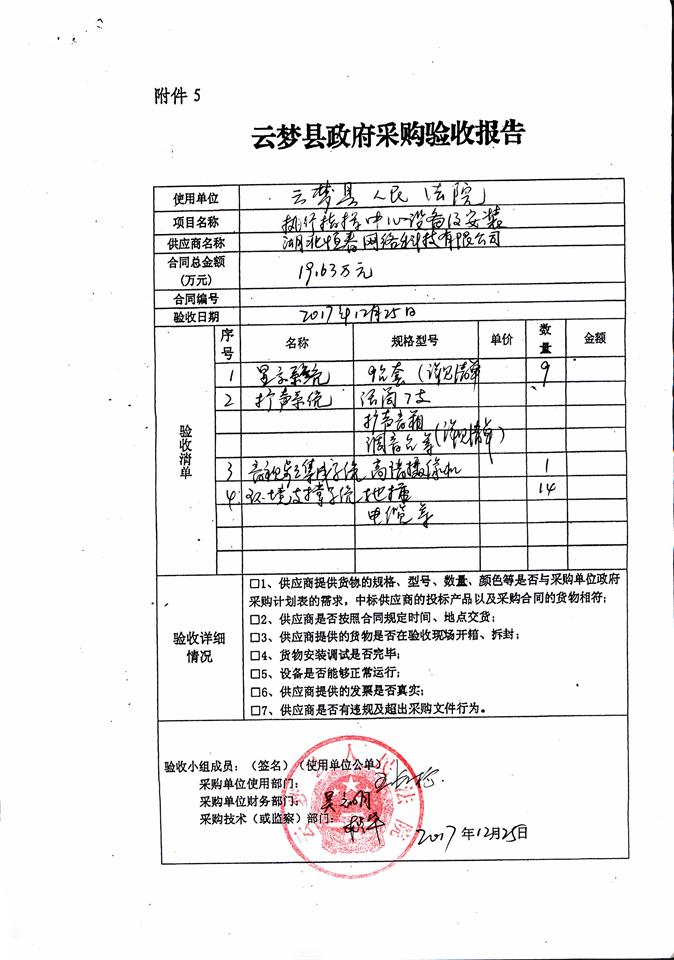 附件 5
云梦县政府采购验收报告
使用单位 云梦县人民法院
项目名称 执行指挥中心设备及安装
供应商名称 湖北恒春网络科技有限公司
合同总金额(万元) 19.63万元
合同编号
验收日期 2017年12月25日
验收清单
序号 名称 规格型号 单价 数量 金额
1 显示系统 9台套(详见清单 9
2 扩声系统 话筒7支
扩声音箱
调音台等(详见清单)
3 高清摄像机 1
4 环境支撑系统 地插 14
电缆等
验收详细情况
□1、供应商提供货物的规格、型号、数量、颜色等是否与采购单位政府
采购计划表的需求,中标供应商的投标产品以及采购合同的货物相符;
□2、供应商是否按照合同规定时间、地点交货;
□3、供应商提供的货物是否在验收现场开箱、拆封;
□4、货物安装调试是否完毕;
□5、设备是否能够正常运行;
□6、供应商提供的发票是否真实;
□7、供应商是否有违规及超出采购文件行为。
验收小组成员:(签名)(使用单位公单)
采购单位使用部门:
采购单位财务部门:
采购技术(或监察)部门:
2017年12月25日
云梦县人民法院